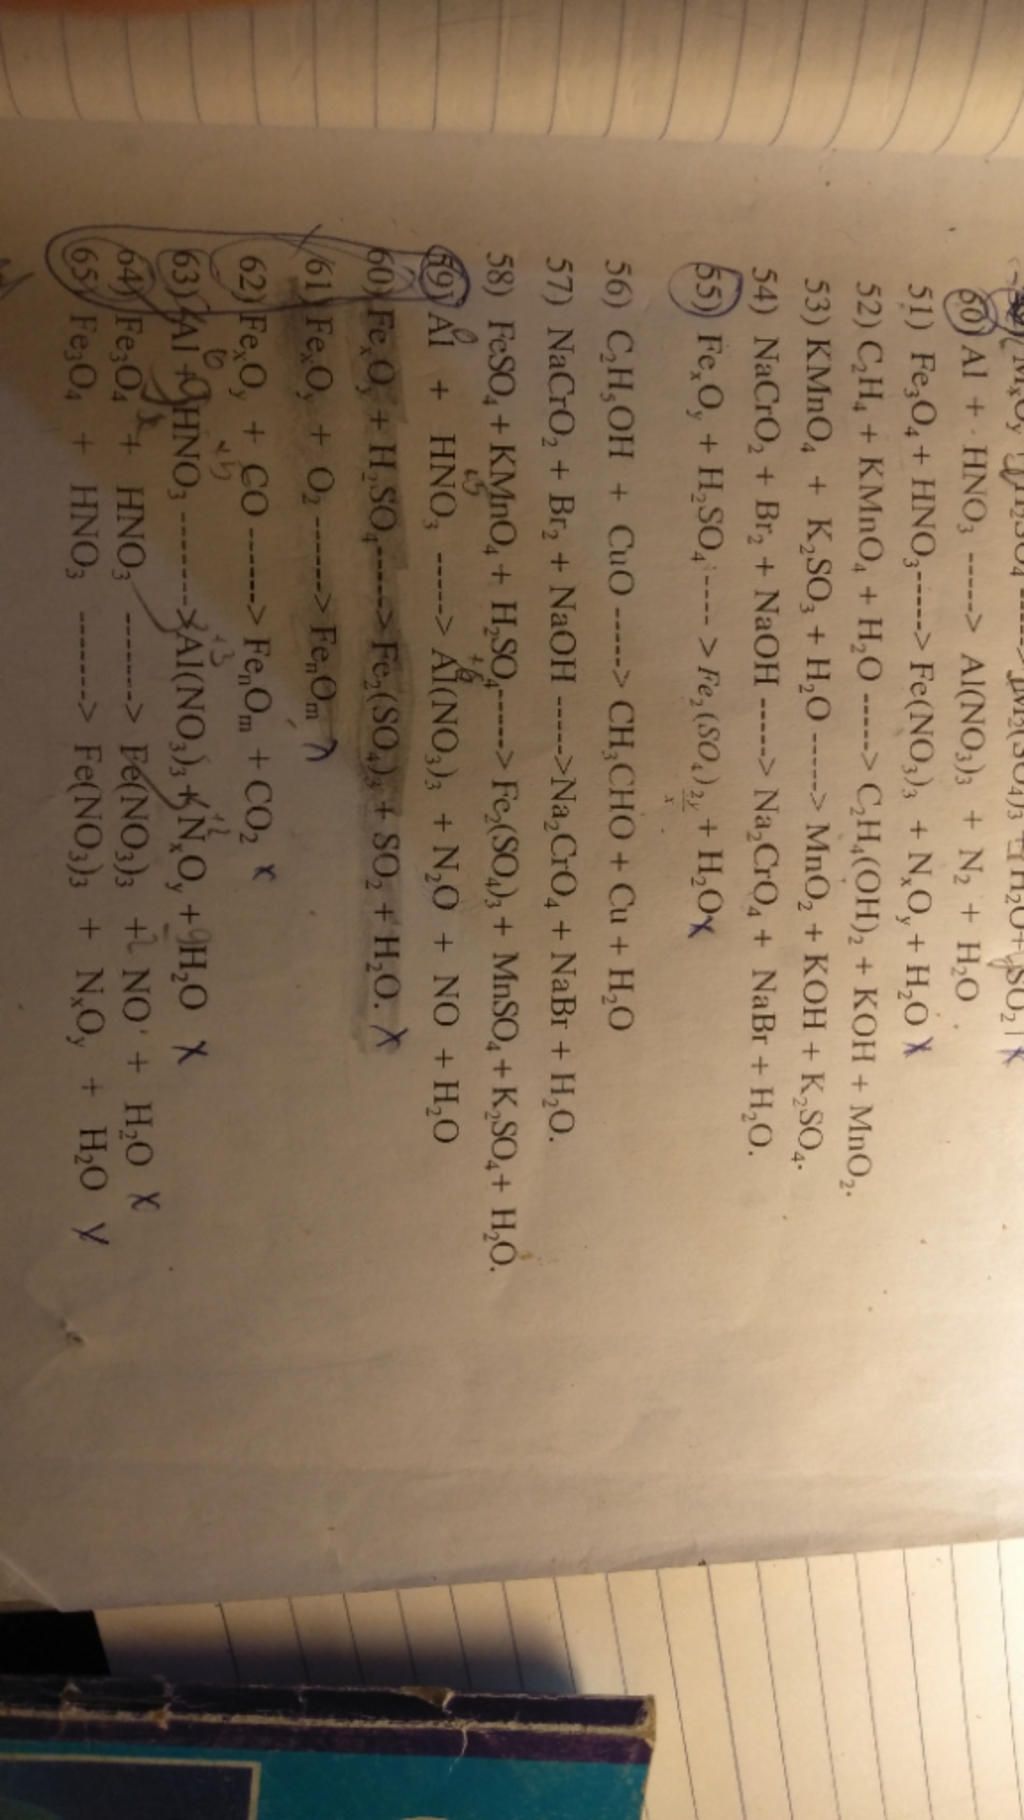 MₓOᵧ H₂SO₄ -----> M₂(SO₄)₃ + H₂O + SO₂ x
60) Al + HNO₃ -----> Al(NO₃)₃ + N₂ + H₂O
51) Fe₃O₄ + HNO₃-----> Fe(NO₃)₃ + NₓOᵧ + H₂O x
52) C₂H₄ + KMnO₄ + H₂O -----> C₂H₄(OH)₂ + KOH + MnO₂.
53) KMnO₄ + K₂SO₃ + H₂O -----> MnO₂ + KOH + K₂SO₄.
54) NaCrO₂ + Br₂ + NaOH -----> Na₂CrO₄ + NaBr + H₂O.
55) FeₓOᵧ + H₂SO₄ ---- > Fe₂(SO₄)2y/x + H₂O x
56) C₂H₅OH + CuO -----> CH₃CHO + Cu + H₂O
57) NaCrO₂ + Br₂ + NaOH ----->Na₂CrO₄ + NaBr + H₂O.
58) FeSO₄ + KMnO₄ + H₂SO₄-----> Fe₂(SO₄)₃ + MnSO₄ + K₂SO₄ + H₂O.
59) Al + HNO₃ -----> Al(NO₃)₃ + N₂O + NO + H₂O
60) FeₓOᵧ + H₂SO₄-----> Fe₂(SO₄)₃ + SO₂ + H₂O. x
61) FeₓOᵧ + O₂ ------> FeₙOₘ
62) FeₓOᵧ + CO -----> FeₙOₘ + CO₂ x
63) Al + HNO₃ ------> Al(NO₃)₃ + NₓOᵧ + H₂O x
64) Fe₃O₄ + HNO₃ -------> Fe(NO₃)₃ + NO + H₂O x
65) Fe₃O₄ + HNO₃ -------> Fe(NO₃)₃ + NₓOᵧ + H₂O